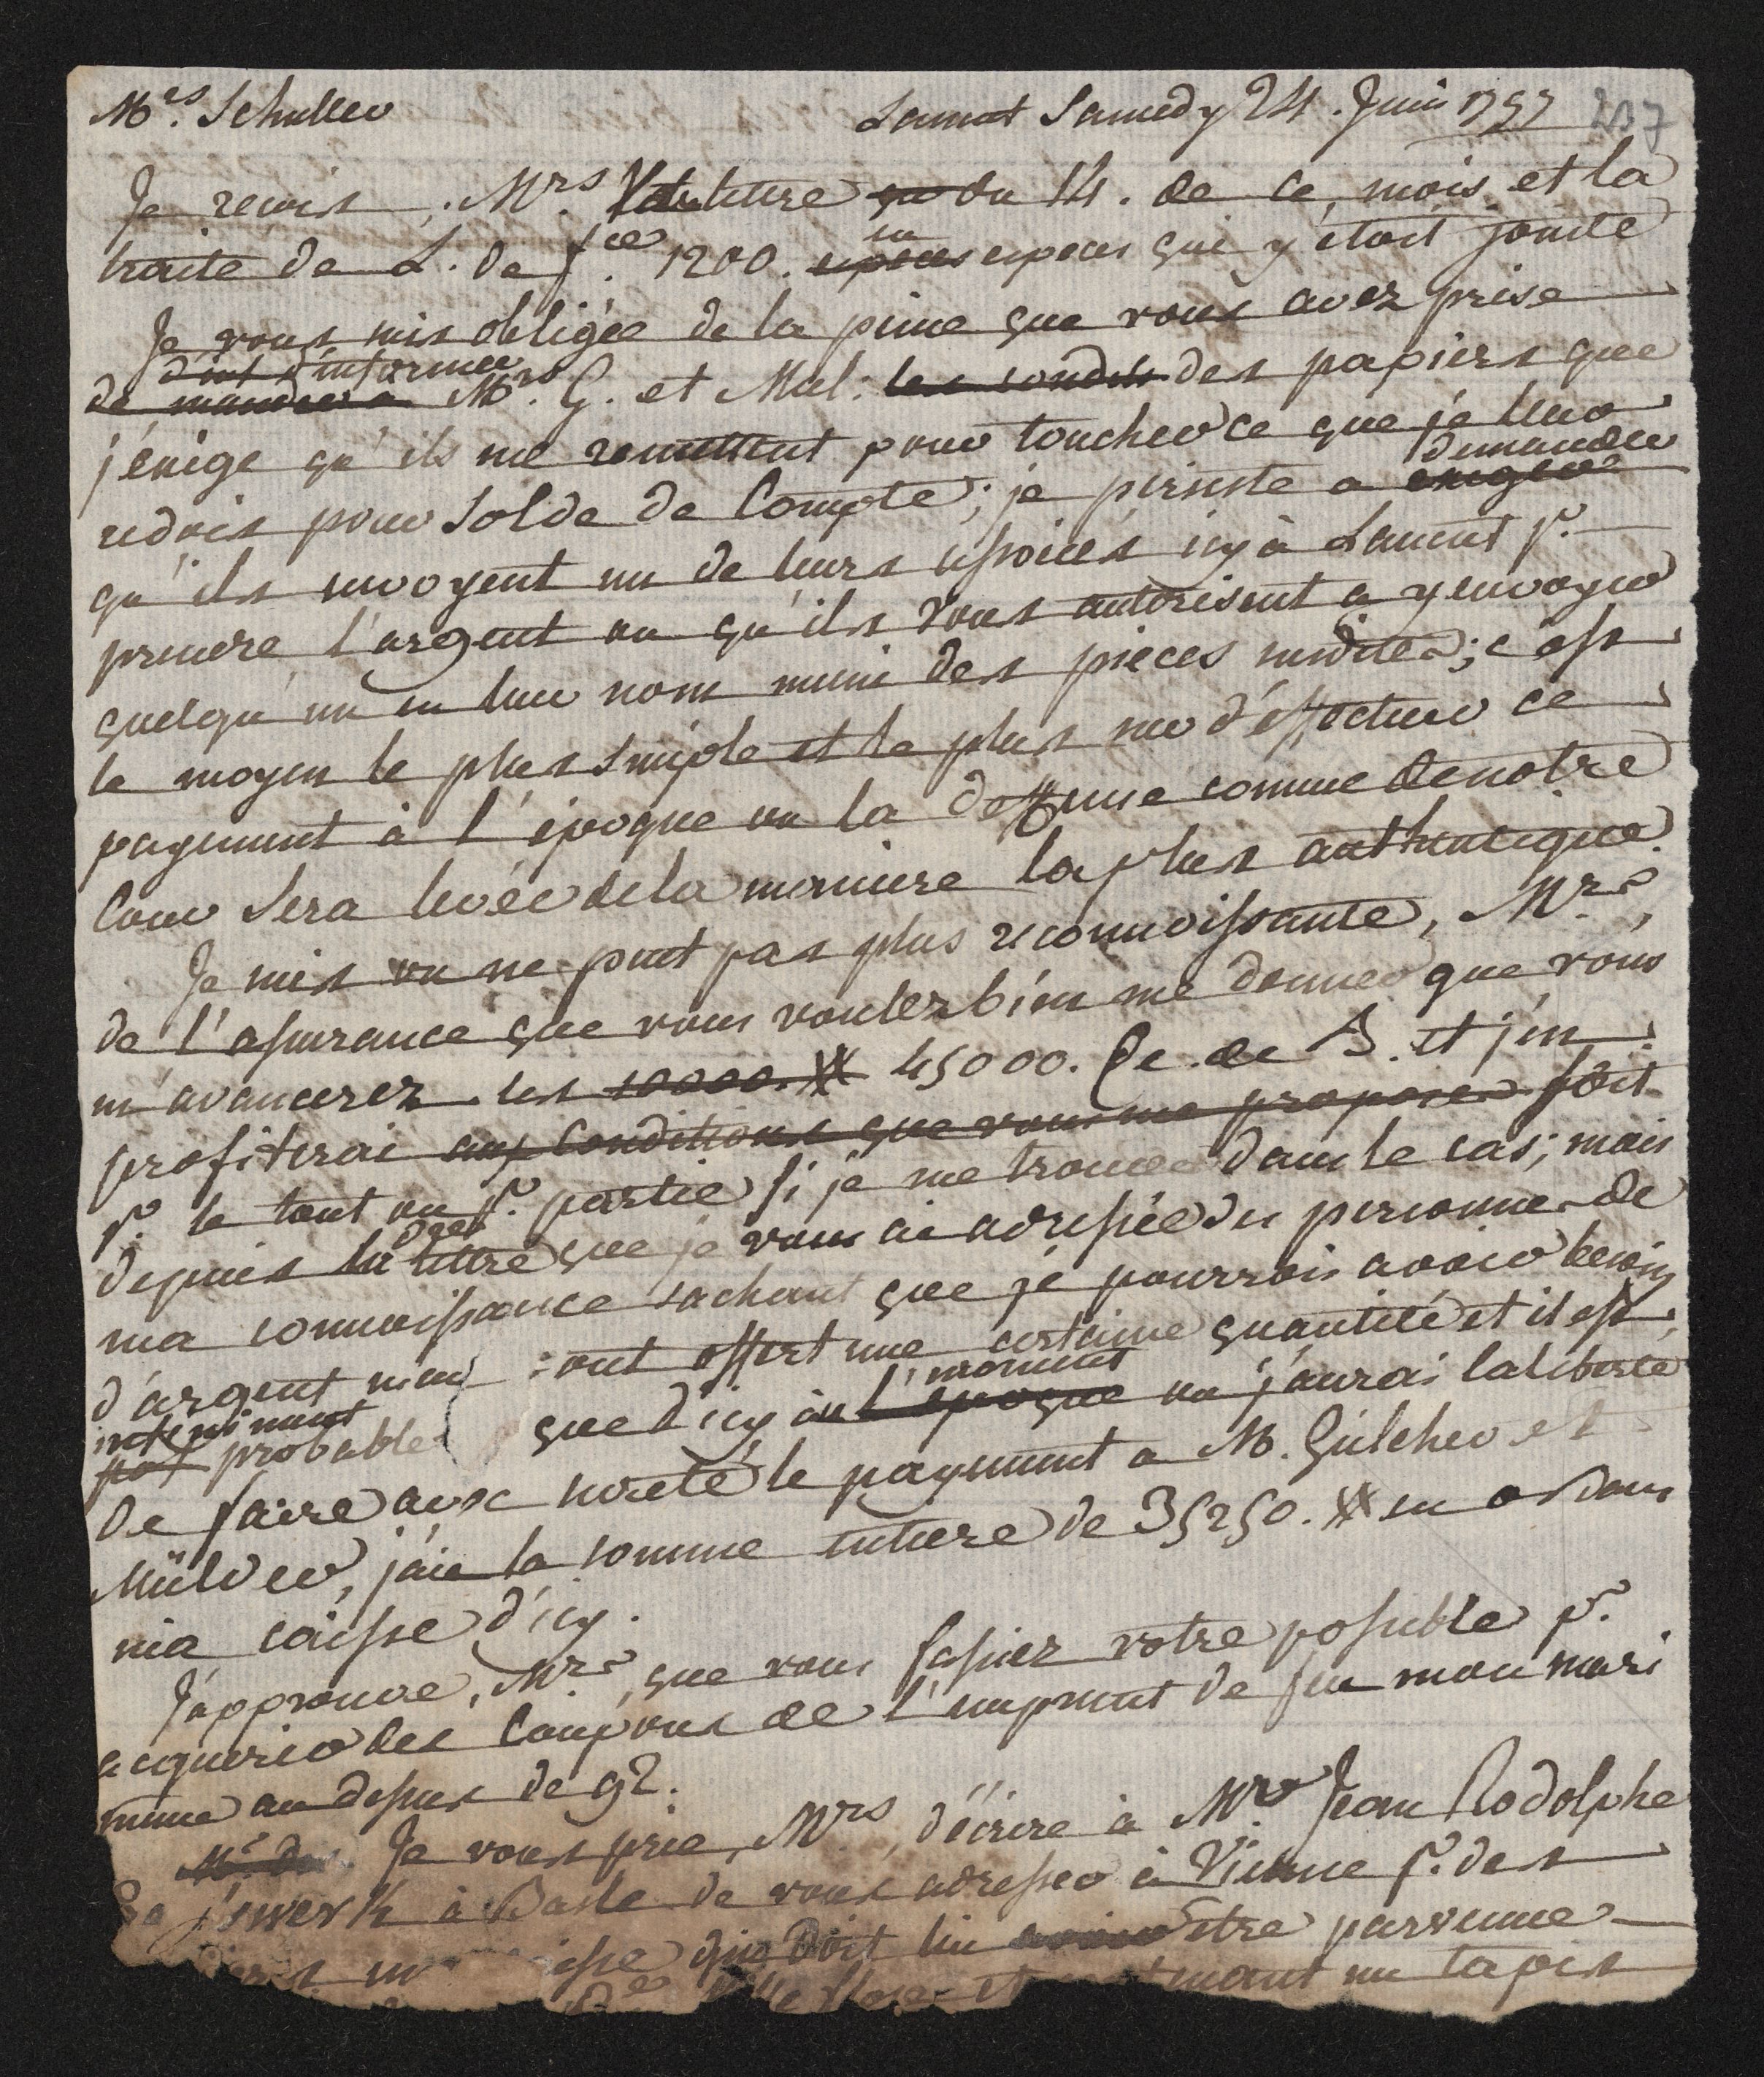 Mrs. Schuller Lament Samedy 24. Juin 1797 237
Je reçois, Mrs. Votre lettre du 14. de ce mois et la
traite de L. de fce. 1200. en especes especes qui y étoit jointe
Je vous suis obligée de la peine que vous avez prise
d'informer
de mander a Mrs. G. et Mul: les condit des papiers que
j'éxige qu'ils me remettent pour toucher ce que je leur
demander
redois pour Solde de Compte; je persiste a exiger
qu'ils envoyent un de leurs associés icy à Lament pr.
prendre l'argent ou qu'ils vous autorisent a y envoyer
quelqu'un en leur nom muni des pieces susdites; c'est
le moyen le plus Simple et le plus sur d'éffectuer ce
payement à l'époque ou la deffense comme de notre
Cour Sera levée de la maniere la plus authentique.
Je suis on ne peut pas plus reconnoissante, Mrs.,
de l'assurance que vous voulez bien me donner que vous
m'avancerez les 10000. # 45000. de B. et j'en
profiterai aux conditions que vous me proposez soit
pr. le tout ou pr. partie si je me trouve dans le cas; mais
depuis la lettre que je vous ai adressée des personnes de
ma connoissance sachant que je pourrois avoir besoin
d'argent m'en ont offert une certaine quantité et il est
infiniment l'moment
probable que d'icy à l'époque ou j'aurai la liberté
de faire avec sureté le payement a M. Gülcher et
Mülder, j'aie la somme entiere de 35250. # en or dans
ma caisse d'icy.
J'approuve, Mrs., que vous fassiez votre possible pr.
acquerir des Coupons de l'emprunt de feu mon mari
même au dessus de 92.
Je vous prie, Mrs, d'écrire à Mr. Jean Rodolphe
à Basle de vous adresser à Vienne pr. des
qui doit lui avoir etre parvenue
un tapis